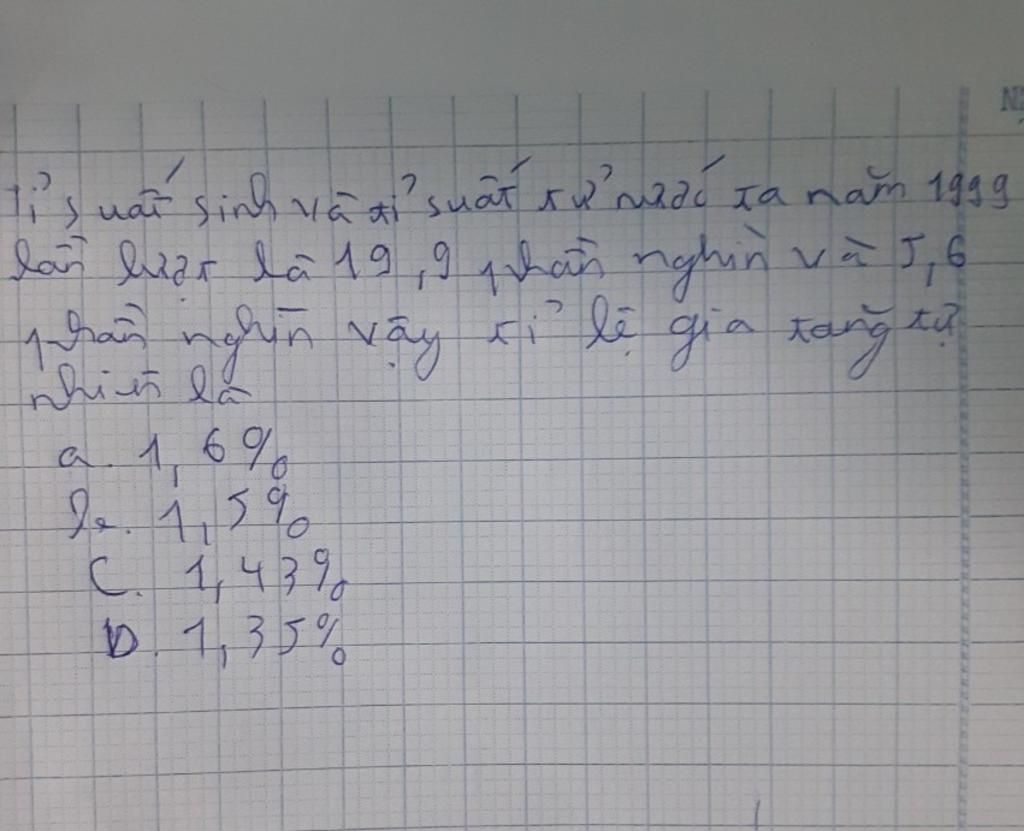 Tỉ suất sinh và tỉ suất tử nước ta năm 1999
lần lượt là 19,9 phần nghìn và 5,6
phần nghìn vậy tỉ lệ gia tăng tự
nhiên là
a. 1,6%
b. 1,5%
C. 1,43%
D. 1,35%